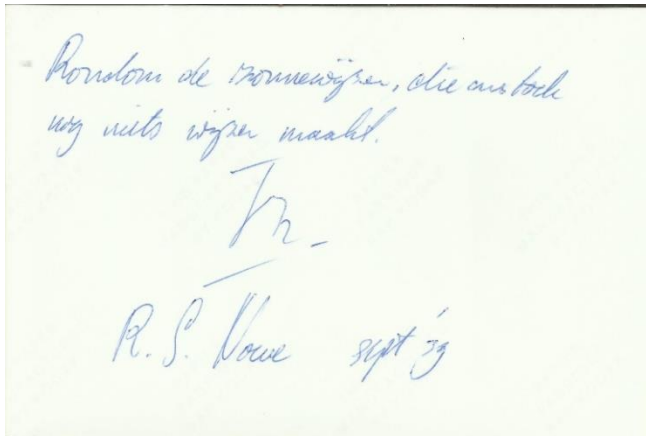 Rondom de zonnewijzer, die ons toch
nog niets wijzer maakt.
R. S. Nowe sept '39